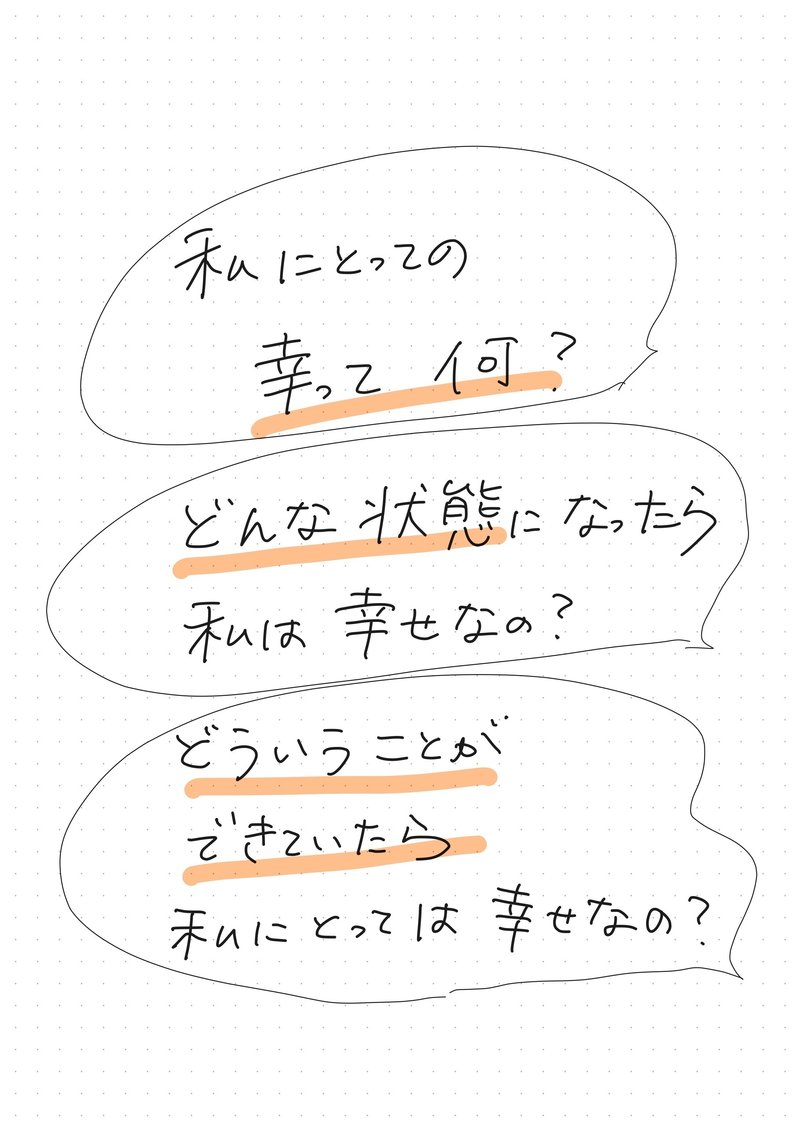 私にとっての
幸って 何?
どんな 状態に なったら
私は 幸せなの?
どういう ことが
できていたら
私にとっては 幸せなの?